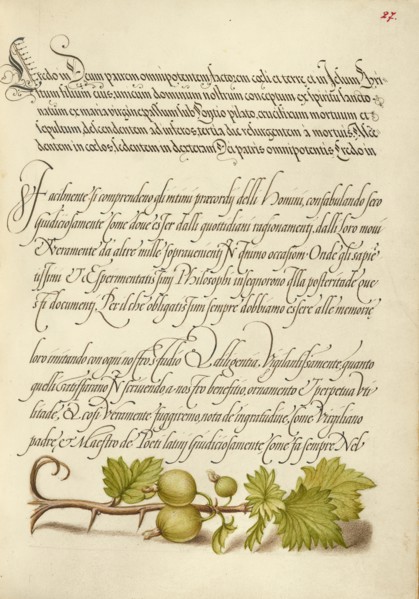 27.
Credo in Deum patrem omnipotentem factorem cœli et terre, et in Jesum Chri
stum filium eius unicum dominum nostrum conceptum ex spiritu sancto
natum ex maria virgine passum sub Pontio pilato, crucifixum mortuum et
sepultum descendentem ad inferos, tertia die resurgentem à mortuis, Asce
dentem in cœlos sedentem in dexteram Dei patris omnipotentis Credo in
Facilmente si comprendeno gli intimi precordij delli Homini, confabulando seco
Giudiciosamente some doue esser dalli quotidiani ragionamenti, dalli loro moui
Veramente da altre mille sopravenenti In Ogniuno occasioni. Onde gli sapie
tissimi Et Esperimentatissimi Philosophi insegnorono alla posterita de que
sti documenti, Per il che obligatissimi sempre dobbiamo essere alle memorie
loro imitando con ogni nostro studio Et diligentia. Vigilantissamente, quanto
quelli satisfaticano In scriuendo, a nostro beneficio, ornamento Et perpetua vti
litade, Et cosi Veramente fuggiremo, nota de ingratitudine, Come Virgiliano
padre, Et Maestro de Poeti latini Giudiciosamente Come fa sempre Nel